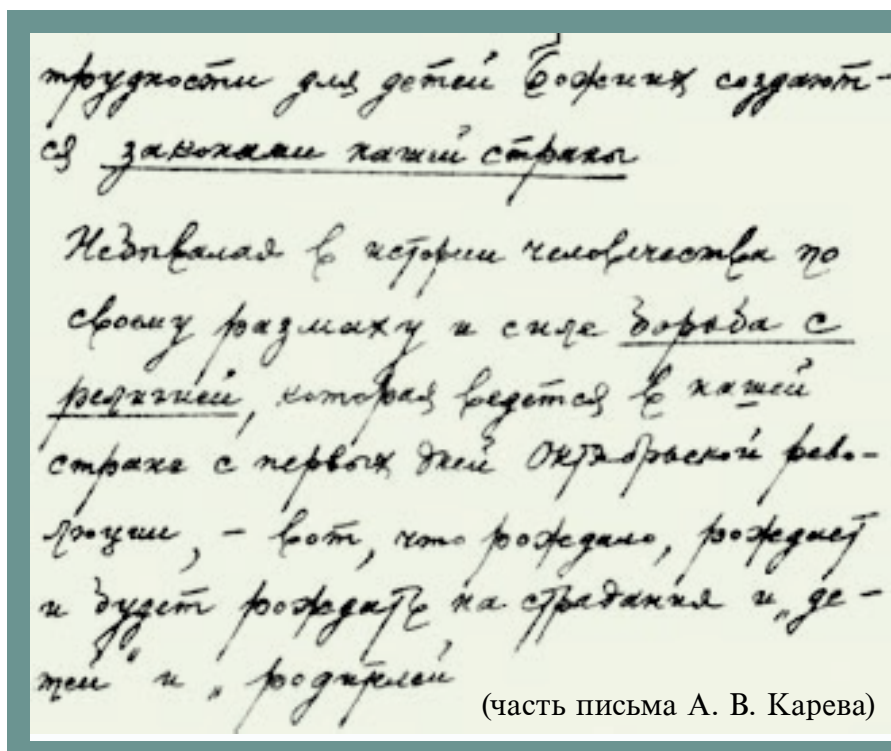 трудности для детей Божиих создают-
ся законами нашей страны
Небывалая в истории человечества по
своему размаху и силе борьба с
религией, которая ведётся в нашей
стране с первых дней Октябрьской рево-
люции, - вот, что рождало, рождает
и будет рождать на страдания и „де-
тей" и „родителей
(часть письма А. В. Карева)